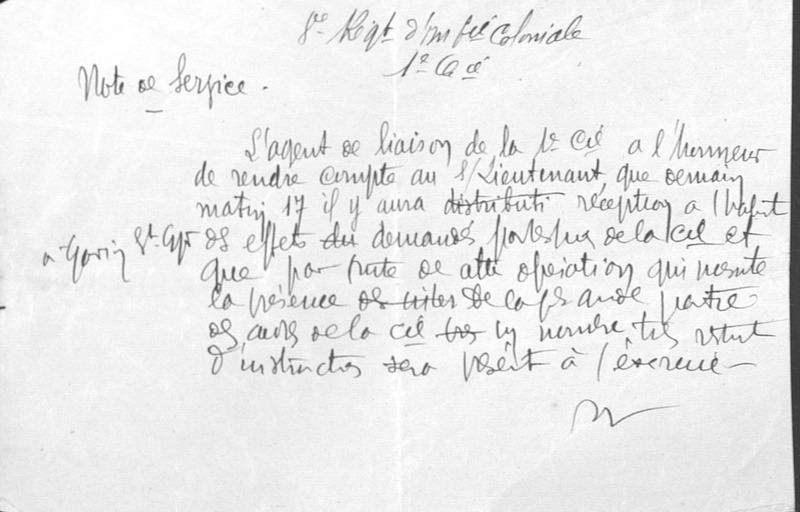 8e Regt d'Infie Coloniale
1e Cie
Note de Service.
L'agent de liaison de la 1e Cie a l'honneur
de rendre compte au S/Lieutenant que demain
matin 17 il y aura distributi réception à l'habt
à St. Cyr des effets du demandés par la Cie et
que par suite de cette opération qui nécessite
la présence de la grande partie
de la Cie un nombre très restreint
d'instructeurs sera présent à l'exercice